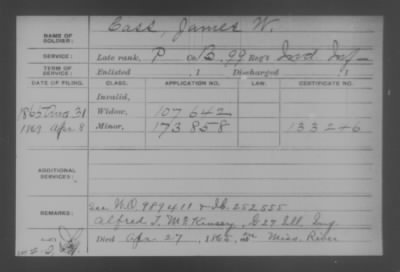 NAME OF SOLDIER: Cass, James W.
SERVICE: Late rank, P Co. B, 99 Reg't Ind Inf
TERM OF SERVICE: Enlisted , 1 Discharged , 1
DATE OF FILING. CLASS. APPLICATION NO. LAW. CERTIFICATE NO.
Invalid,
1865 Aug 31 Widow, 107642
1869 Apr 8 Minor, 173858 133246
ADDITIONAL SERVICES:
REMARKS: See W.O. 989411 & Ib. 252555
Alfred T. McKinsey, G 27 Ill. Inf.
Died Apr 27, 1865, Miss. River